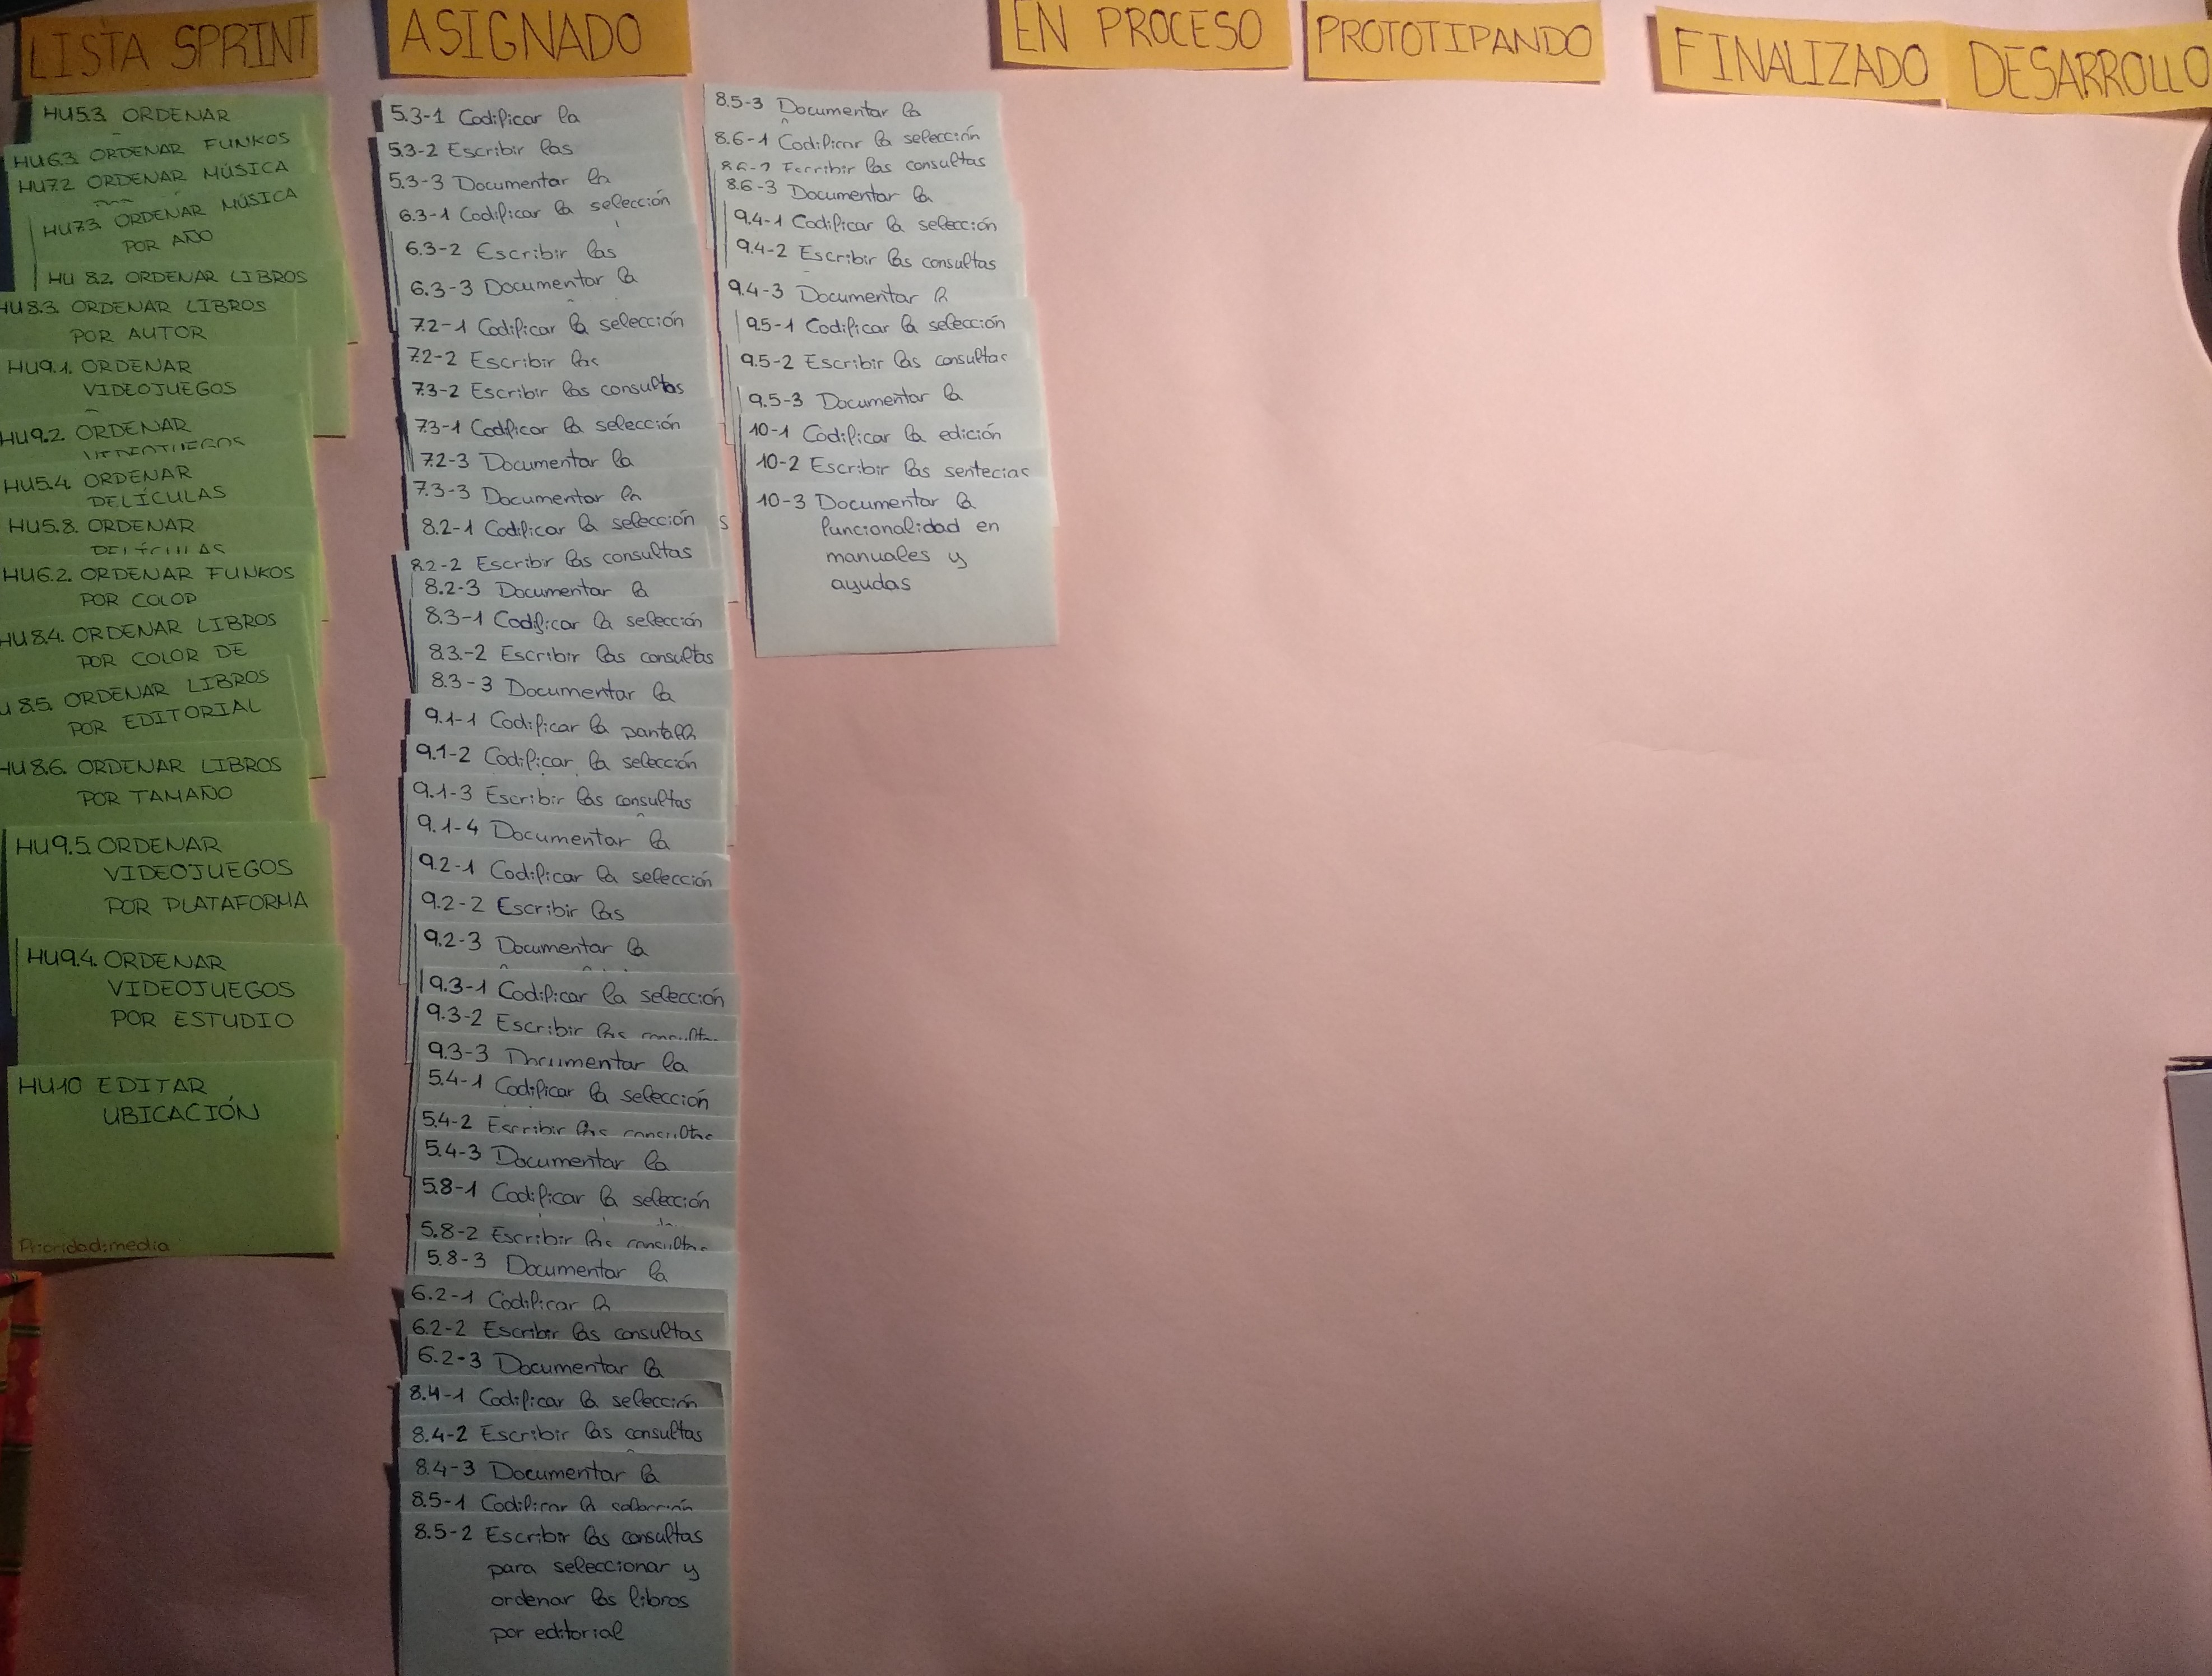 LISTA SPRINT
ASIGNADO
EN PROCESO
PROTOTIPANDO
FINALIZADO
DESARROLLO
HU5.3. ORDENAR
HU6.3. ORDENAR FUNKOS
HU7.2 ORDENAR MÚSICA
HU7.3. ORDENAR MÚSICA
POR AÑO
HU 8.2. ORDENAR LIBROS
HU8.3. ORDENAR LIBROS
POR AUTOR
HU9.1. ORDENAR
VIDEOJUEGOS
HU9.2. ORDENAR
VIDEOJUEGOS
HU5.4. ORDENAR
PELÍCULAS
HU5.8. ORDENAR
PELÍCULAS
HU6.2. ORDENAR FUNKOS
POR COLOR
HU8.4. ORDENAR LIBROS
POR COLOR DE
U 8.5. ORDENAR LIBROS
POR EDITORIAL
HU8.6. ORDENAR LIBROS
POR TAMAÑO
HU9.5. ORDENAR
VIDEOJUEGOS
POR PLATAFORMA
HU9.4. ORDENAR
VIDEOJUEGOS
POR ESTUDIO
HU10 EDITAR
UBICACIÓN
Prioridad: media
5.3-1 Codificar la
5.3-2 Escribir las
5.3-3 Documentar la
6.3-1 Codificar la selección
6.3-2 Escribir las
6.3-3 Documentar la
7.2-1 Codificar la selección
7.2-2 Escribir las
7.3-2 Escribir las consultas
7.3-1 Codificar la selección
7.2-3 Documentar la
7.3-3 Documentar la
8.2-1 Codificar la selección
8.2-2 Escribir las consultas
8.2-3 Documentar la
8.3-1 Codificar la selección
8.3.-2 Escribir las consultas
8.3-3 Documentar la
9.1-1 Codificar la pantalla
9.1-2 Codificar la selección
9.1-3 Escribir las consultas
9.1-4 Documentar la
9.2-1 Codificar la selección
9.2-2 Escribir las
9.2-3 Documentar la
9.3-1 Codificar la selección
9.3-2 Escribir las consultas
9.3-3 Documentar la
5.4-1 Codificar la selección
5.4-2 Escribir las consultas
5.4-3 Documentar la
5.8-1 Codificar la selección
5.8-2 Escribir las consultas
5.8-3 Documentar la
6.2-1 Codificar la
6.2-2 Escribir las consultas
6.2-3 Documentar la
8.4-1 Codificar la selección
8.4-2 Escribir las consultas
8.4-3 Documentar la
8.5-1 Codificar la selección
8.5-2 Escribir las consultas
para seleccionar y
ordenar los libros
por editorial
8.5-3 Documentar la
8.6-1 Codificar la selección
8.6-2 Escribir las consultas
8.6-3 Documentar la
9.4-1 Codificar la selección
9.4-2 Escribir las consultas
9.4-3 Documentar la
9.5-1 Codificar la selección
9.5-2 Escribir las consultas
9.5-3 Documentar la
10-1 Codificar la edición
10-2 Escribir las sentecias
10-3 Documentar la
funcionalidad en
manuales y
ayudas